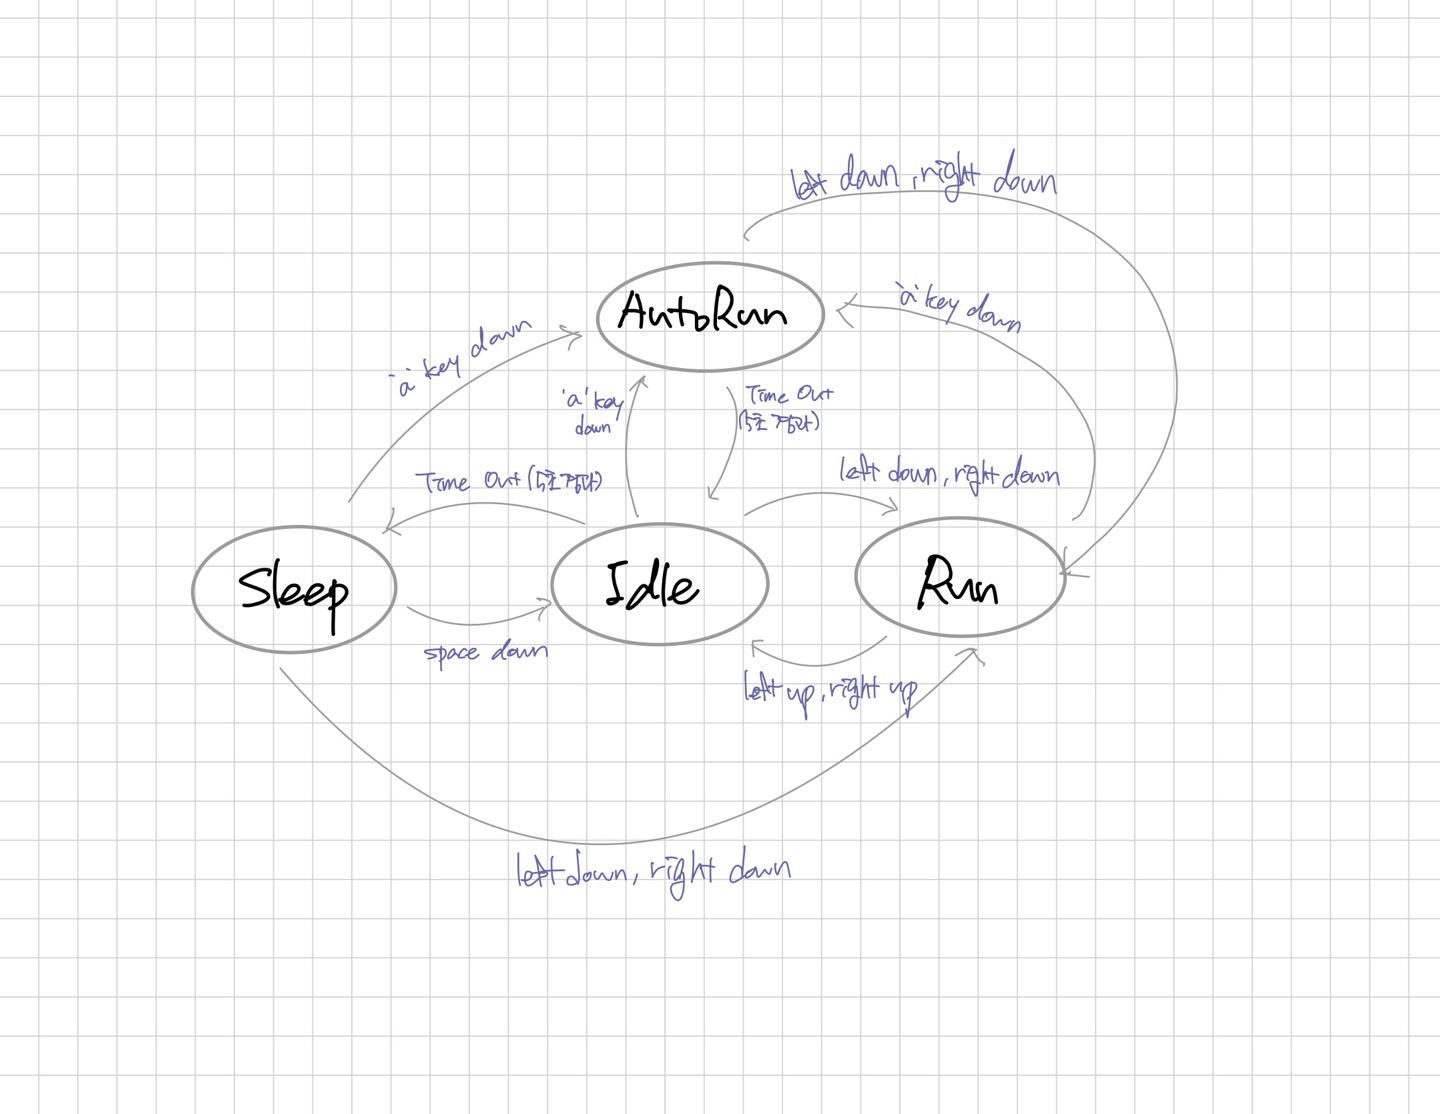 left down, right down
'a' key down
AutoRun
'a' key down
'a' key
down
Time Out
(5초 경과)
Time Out (5초 경과)
left down, right down
Sleep
Idle
Run
space down
left up, right up
left down, right down